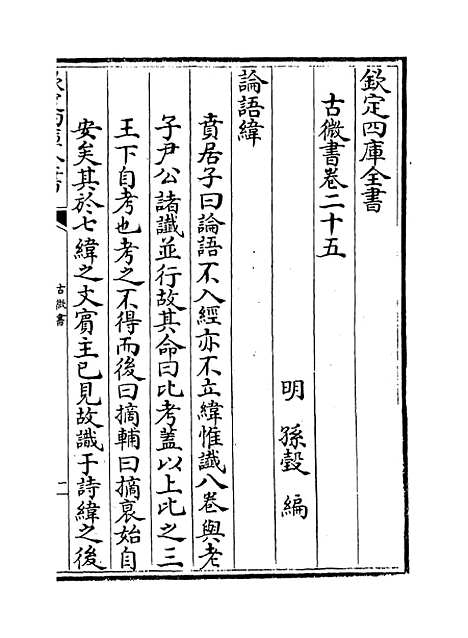 欽定四庫全書
古微書卷二十五
明 孫瑴 編
論語緯
賁居子曰論語不入經亦不立緯惟讖八卷與老
子尹公諸讖並行故其命曰比考蓋以上比之三
王下自考也考之不得而後曰摘輔曰摘衰始自
安矣其於七緯之文賓主已見故識于詩緯之後
古微書